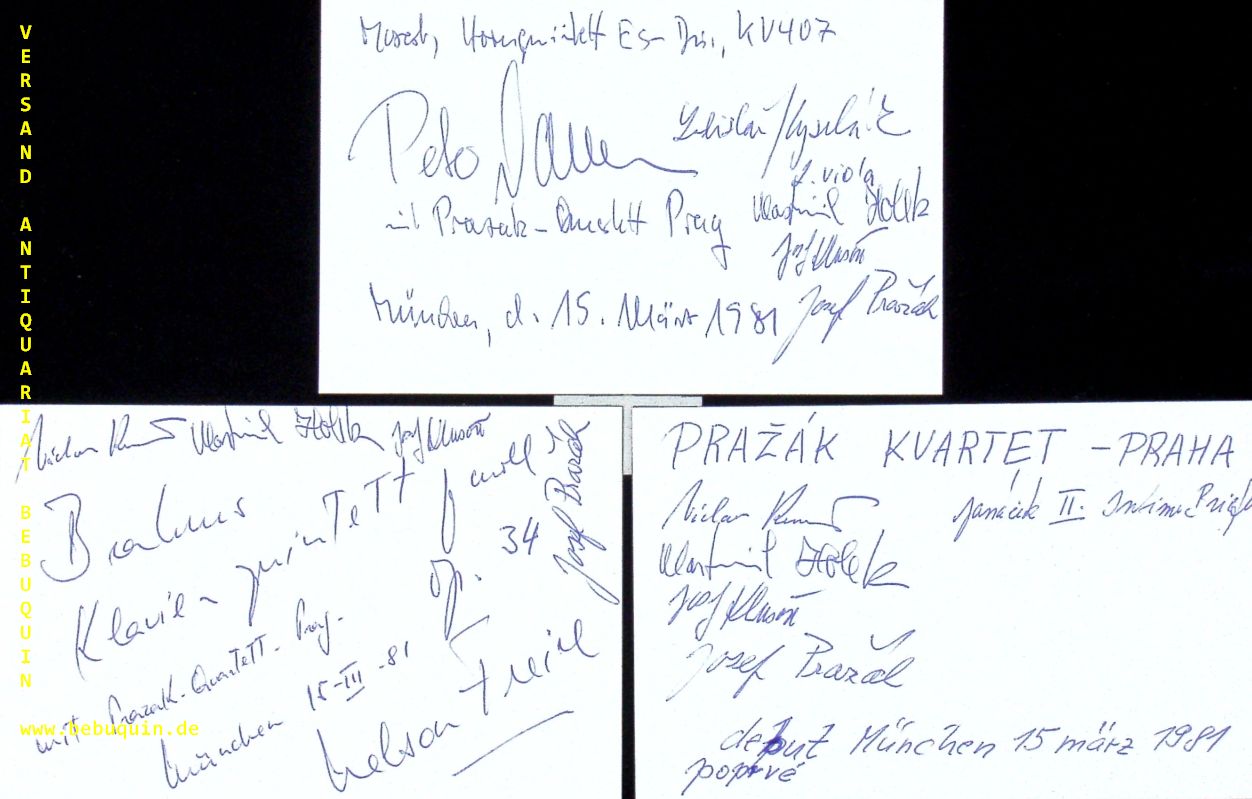 VERSAND ANTIQUARIAT BEBUQUIN
www.bebuquin.de
Mozart, Hornquintett Es-Dur, KV407
Peter Damm
Ladislav Kyselák
2. viola
mit Prazak-Quartett Prag
Vlastimil Holek
Josef Klusoň
München, d. 15. März 1981
Josef Pražák
Václav Remeš Vlastimil Holek Josef Klusoň
Josef Pražák
Brahms
Klavier quinTeTT f moll
op. 34
mit Prazak-QuarteTT-Prag.
München 15-III-81
Nelson Freire
PRAŽÁK KVARTET - PRAHA
Václav Remeš
Janáček II.
Vlastimil Holek
Josef Klusoň
Josef Pražák
debut München 15 märz 1981
poprvé